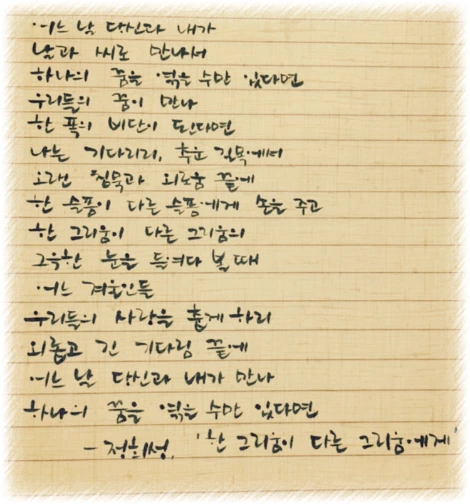 어느 날 당신과 내가
날과 씨로 만나서
하나의 꿈을 엮을 수만 있다면
우리들의 꿈이 만나
한 폭의 비단이 된다면
나는 기다리리, 추운 길목에서
오랜 침묵과 외로움 끝에
한 슬픔이 다른 슬픔에게 손을 주고
한 그리움이 다른 그리움의
그윽한 눈을 들여다 볼 때
어느 겨울인들
우리들의 사랑을 춥게 하리
외롭고 긴 기다림 끝에
어느 날 당신과 내가 만나
하나의 꿈을 엮을 수만 있다면
- 정희성, '한 그리움이 다른 그리움에게'